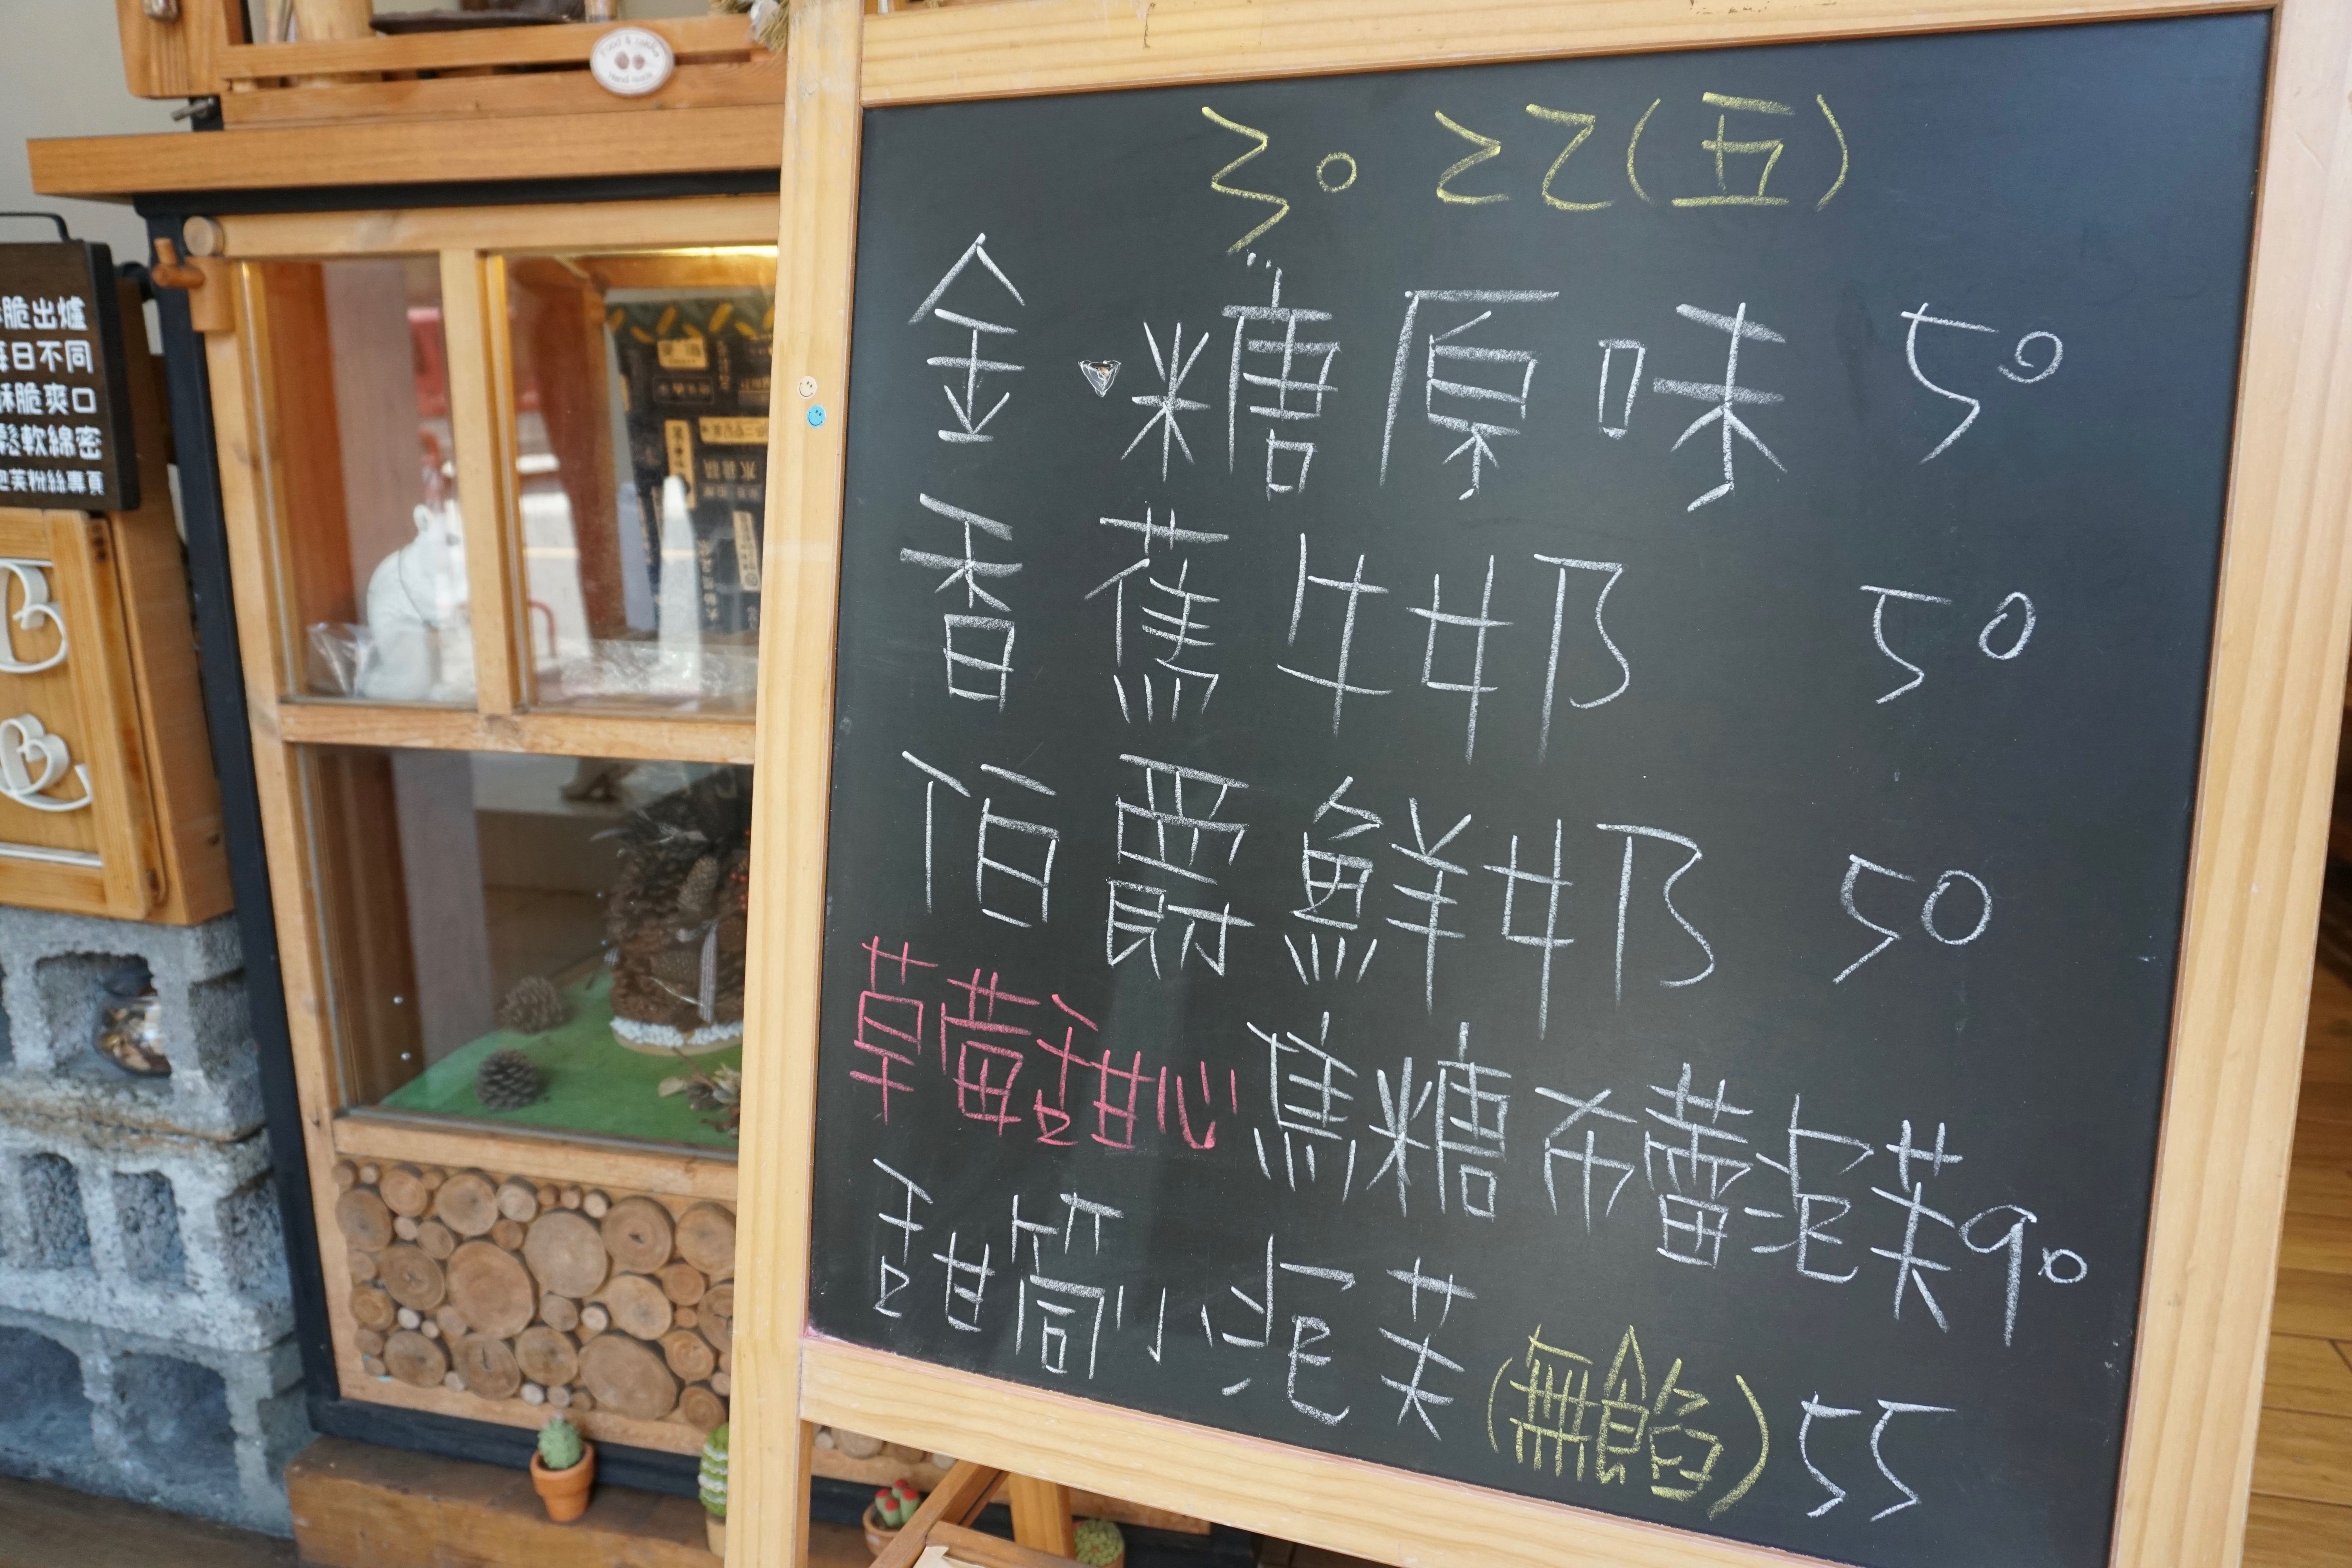 3。22(五)
金·糖原味 50
香蕉牛奶 50
伯爵鮮奶 50
草莓甜心 焦糖布蕾泡芙90
甜筒小泡芙(無餡)55
脆出爐
每日不同
酥脆爽口
鬆軟綿密
泡芙粉絲專頁